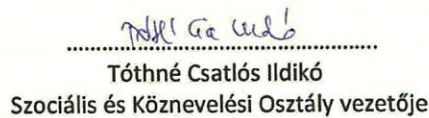 Tóthné Csatlós Ildikó
Szociális és Köznevelési Osztály vezetője